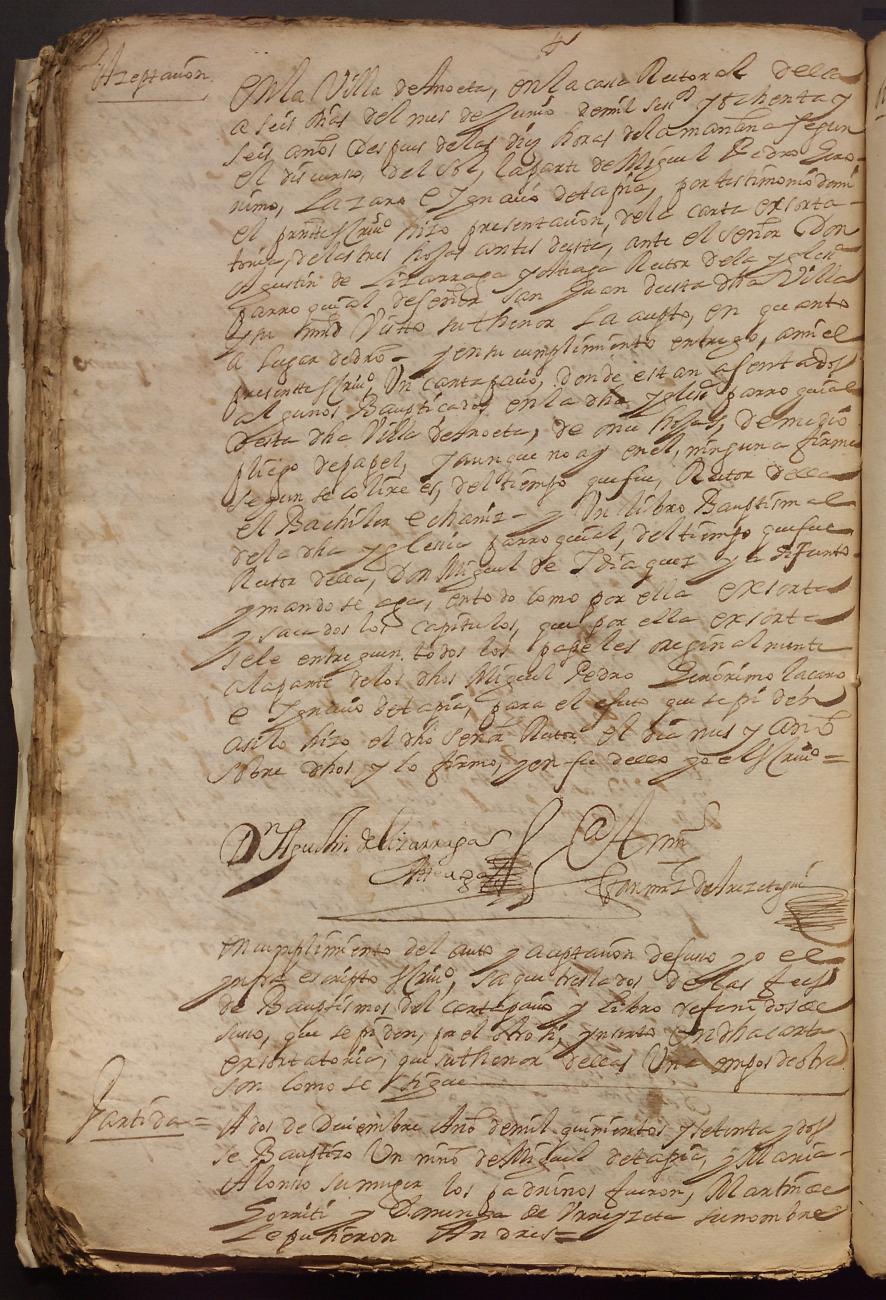 Azeptaçion
En la Villa de Anoeta, en la casa Rectoral della
a seis dias del mes de Junio de mil seisº y ochenta y
seis años despues de las diez horas de la mañana segun
el discurso, del sol, la parte de Miguel Pedro Gero-
nimo, Lazaro e Ygnaçio de tapia, por testimonio de mi
el presste scriuº hizo presentaçion, de la carta exsorta-
toria, de las tres hojas antes desta, ante el señor Don
Agustin de Lizarraga y Ateaga Rector de la yglesª
Parroquial de señor San Juan desta dha Villa
y su mrd Visto su thenor La aceto, en quanto
a lugar de drº - y en su cumplimiento entrego, a mi el
presentte scriuº, Un cartapaçio, donde estan asentados
algunos Bauptiçados, en la dha yglesª parroquial
desta dha Villa de Anoeta, de onze hojas, de medio
pliego de papel, y aunque no ay en el, ninguna firma
segun se colixe es, del tiempo que fue, Rector della
el Bachiler echaniz - y Un libro Bauptismal
de la dha yglesia parroquial, del tiempo que fue
Rector della, Don Miguel de Ydiaquez ya difunto
y mando se aga, en todo como por ella exsorta
y sacados los capitulos, que por ella exsorta
se le entreguen todos los papeles originalmente
a la parte de los dhos Miguel Pedro Geronimo lacaro
e Ygnaçio de tapia, para el efecto que se piden
asi lo hizo el dho señor Rector el dia mes y año
sobre dhos y lo firmo, y en fe dello yo el scriuº =
Dn Agustin de Lizarraga
Ateaga
Ante mi
Juan mrz de Arezetegui
En cumplimiento del auto y aceptaçion de suso yo el
ynfra escripto scriuº, saque traslados de las fees
de Bauptismos del cartapaçio y libro referidos de
suso, que se piden, por el otro si, ynserto en dha carta
exsortatoria, que su thenor dellas Una empos de otra
son como se sigue
Partida =
A dos de Diciembre Año de mil quinientos y setenta y dos
se Bauptizo Un niño de Miguel de tapia, y Maria
Alonso su muger los padrinos fueron, Martin de
Sorriti y Dominga de Yrreyzeta su nombre
Le pusieron Andres =